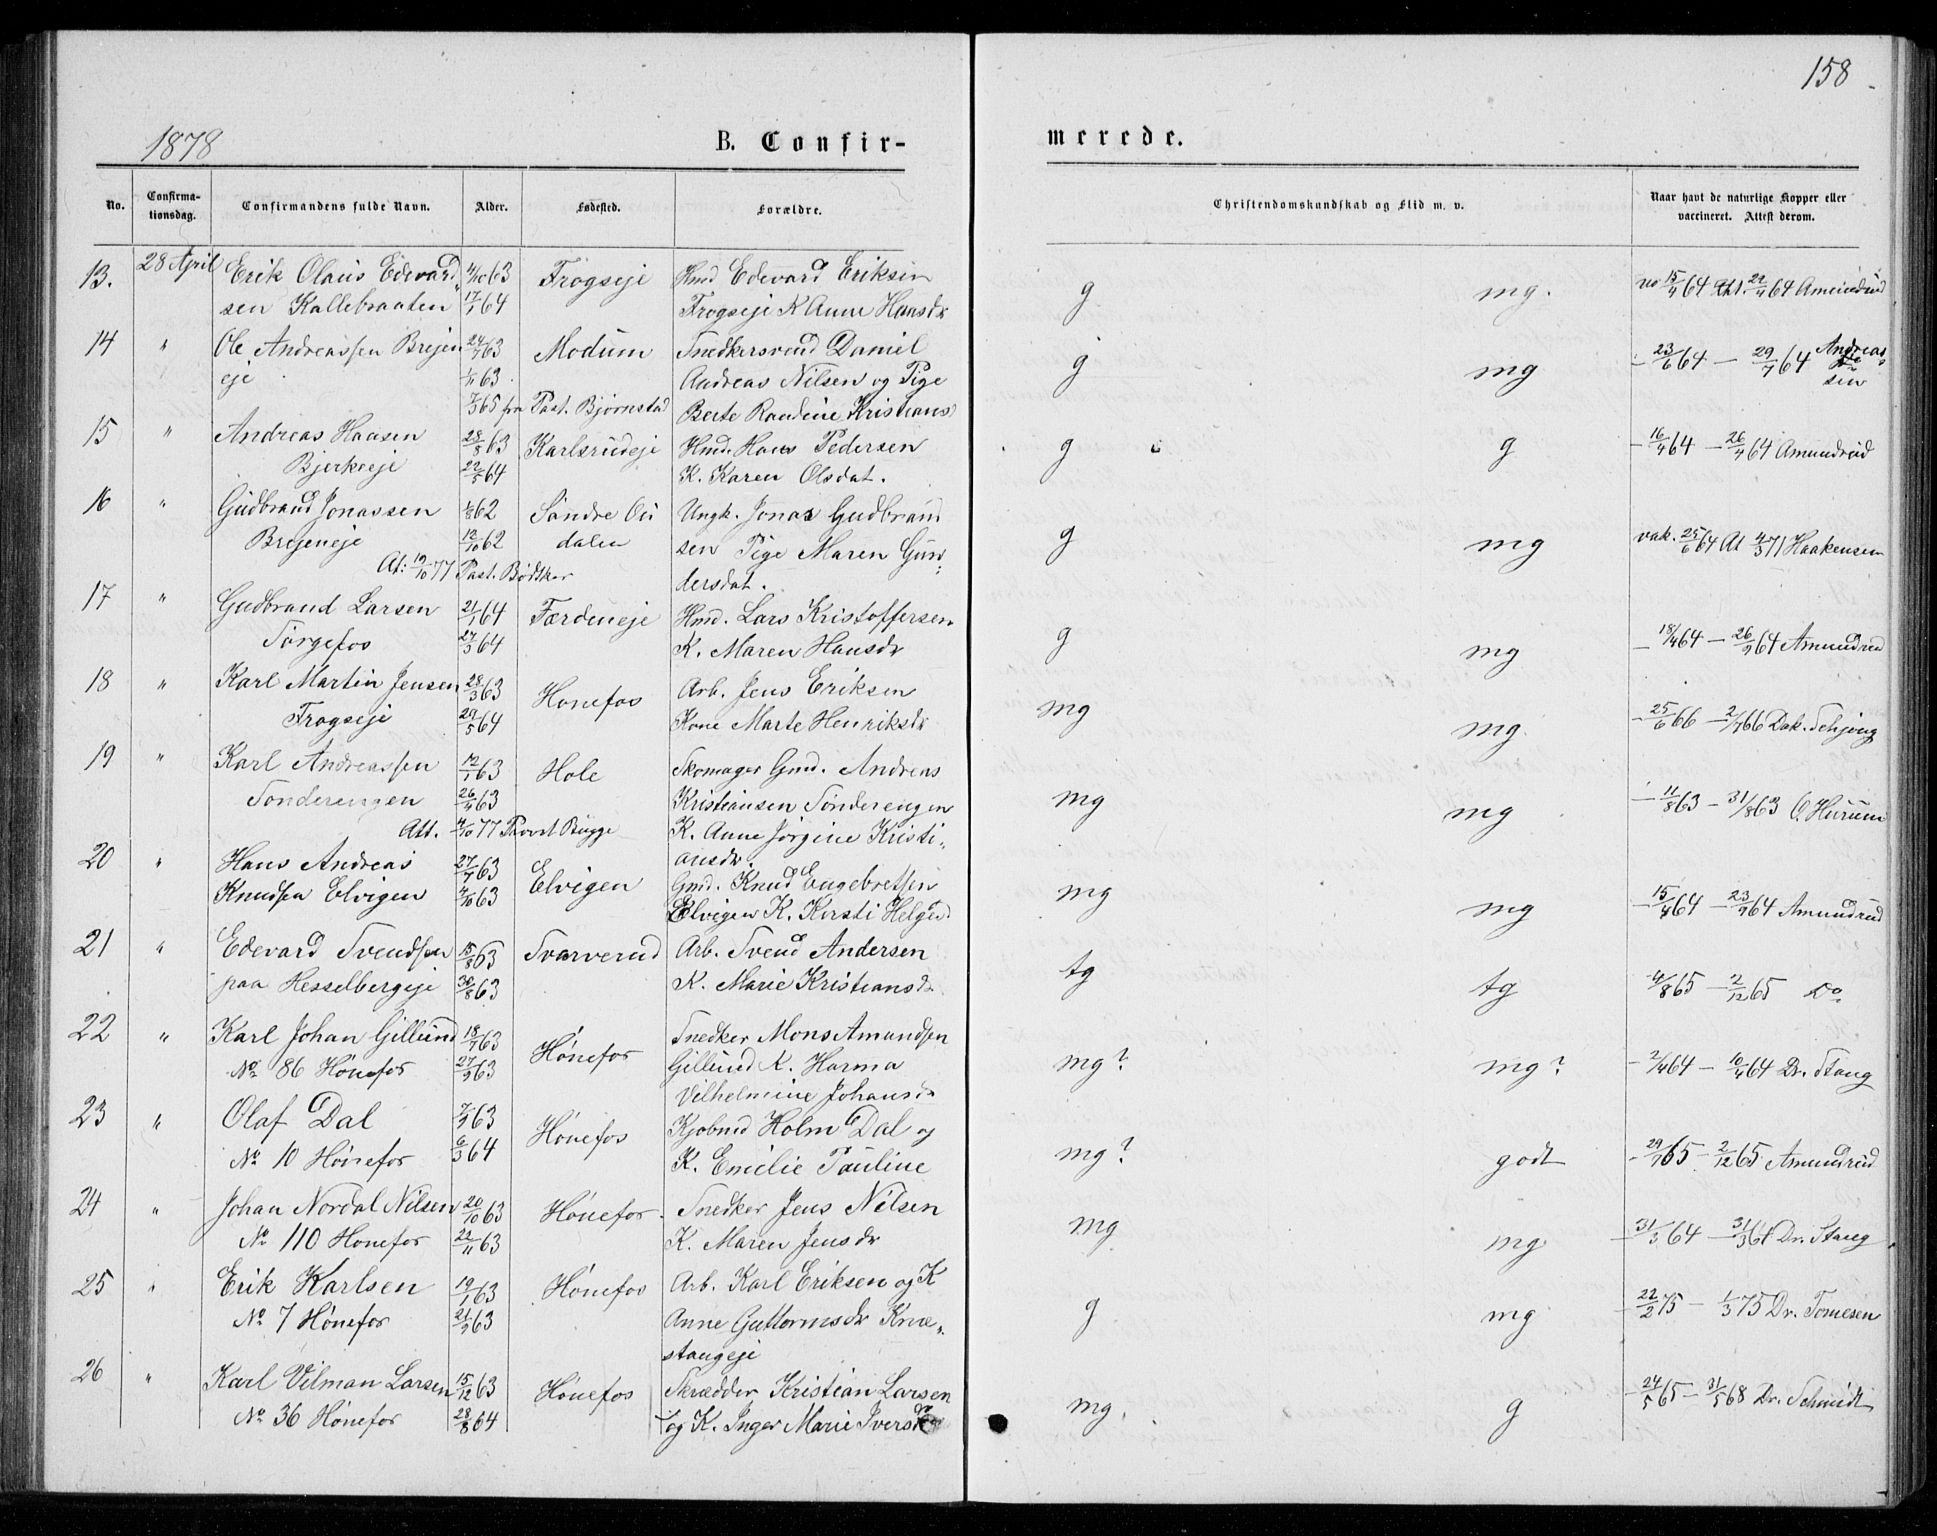 158
1878
B. Confir-
merede.
No.
Confirma-
tionsdag.
Confirmandens fulde Navn.
Alder.
Fødested.
Forældre.
Christendomskundskab og Flid m. v.
Naar havt de naturlige Kopper eller
vaccineret. Attest derom.
13. 28 April Erik Olaus Edevard- 63 Frogseje Hmd Edevard Eriksen g mg. 15/4 64 Att. 22/4 64 Amundrud
sen Kallebraaten 17/1 64 Frogseje K Anne Hansdr
14 " Ole Andreassen Brejen 24/7 63 Modum Snedkersvend Daniel g mg - 23/6 64 - 29/7 64 Andreas
eje 63 Andreas Nilsen og Pige sen
65 fra Past. Bjørnstad Berte Randine Kristians
15 " Andreas Hansen 28/8 63 Karlsrudeje Hmd. Hans Pedersen g g - 16/4 64 - 26/4 64 Amundrud
Bjerkeeje 22/5 64 K. Karen Olsdat.
16 " Gudbrand Jonassen 62 Søndre Ou Ungk. Jonas Gudbrand g mg vak. 25/6 64 At 4/3 71 Haakensen
Brejeneje 12/10 62 dalen sen Pige Maren Gun-
At: 19/10 77 Past. Bødtker dersdat.
17 " Gudbrand Larsen 21/1 64 Færdeneje Hmd. Lars Kristoffersen g mg - 18/4 64 - 26/4 64 Amundrud
Sørgefos 27/3 64 K. Maren Hansdr
18 " Karl Martin Jensen 28/3 63 Honefos Arb. Jens Eriksen mg mg - 25/6 66 - 2/7 66 Dak. Schjøng
Frogseje 29/5 64 Kone Marte Henriksdr
19 " Karl Andreassen 12/1 63 Hole Skomager Gmd. Andreas mg mg - 11/8 63 - 31/8 63 O. Hurum
Sønderengen 26/4 63 Kristiansen Sønderengen
Att. 4/10 77 Provst Bugge K. Anne Jørgine Kristi-
ansdr
20 " Hans Andreas 27/7 63 Elvigen Gmd. Knud Engebretsen mg mg - 15/4 64 - 23/4 64 Amundrud
Knudsen Elvigen 4/10 63 Elvigen K. Kirsti Helgesd
21 " Edevard Svendsen 15/8 63 Svarverud Arb. Svend Andersen tg tg 4/8 65 - 2/12 65 Do
paa Hesselbergeje 30/8 63 K. Marie Kristiansdr
22 " Karl Johan Gillund 18/7 63 Hønefos Snedker Mons Amundsen mg? mg? - 2/4 64 - 10/4 64 Dr. Stang
No 86 Hønefos 27/9 63 Gillund K. Harma
Vilhelmine Johansdr
23 " Olaf Dal 63 Hønefos Kjøbmd Holm Dal og mg? godt - 29/7 65 - 2/12 65 Amundrud
No 10 Hønefos 6/3 64 K. Emelie Pauline
24 " Johan Nordal Nilsen 20/10 63 Hønefos. Snedker Jens Nilsen mg mg - 31/3 64 - 31/3 64 Dr. Stang
No 110 Hønefos 22/11 63 K. Maren Jensdr
25 " Erik Karlsen 19/1 63 Hønefos Arb. Karl Eriksen og K g mg - 22/2 75 - 1/3 75 Dr. Tomesen
No 7 Hønefos 63 Anne Guttormsdr Knæ-
stangeje
26 " Karl Vilman Larsen 15/12 63 Hønefos Skrædder Kristian Larsen mg. g - 24/5 65 - 31/5 68 Dr. Schmidt
No 36 Hønefos 28/8 64 og K. Inger Marie Iversdr